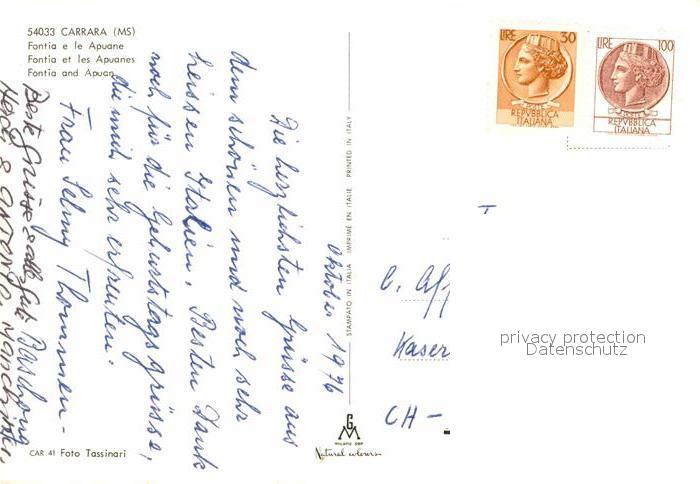 54033 CARRARA (MS)
Fontia e le Apuane
Fontia et les Apuanes
Fontia and Apuan
Oktober 1976
Die herzlichsten Grüsse aus
dem schönen und noch sehr
heissen Italien. Besten Dank
noch für die Geburtstagsgrüsse,
die mich sehr erfreuten.
Frau Selmy Thommen-
Beste Grüsse
CAR 41 Foto Tassinari
STAMPATO IN ITALIA IMPRIMÉ EN ITALIE PRINTED IN ITALY
GM
MILANO
Natural colours
LIRE 30
POSTE
REPVBBLICA
ITALIANA
LIRE 100
POSTE
REPVBBLICA
ITALIANA
T
C. Aff
Kaser
CH-
privacy protection
Datenschutz